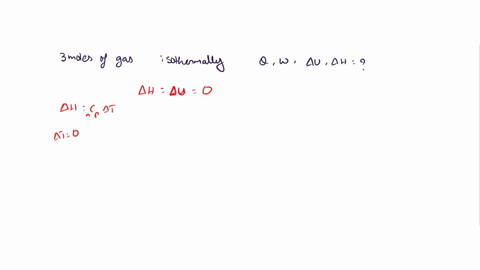 3 moles of gas isothermally Q, W, ΔU, ΔH = ?
ΔH = ΔU = 0
ΔH = nCp ΔT
ΔT = 0